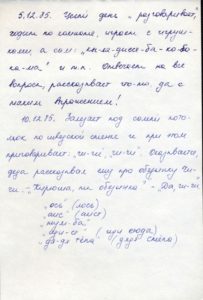 5.12.85. Целый день „разговаривает",
ходит по комнате, играет с игруш-
ками, а сам: „ка-ка-дисе-ба-ко-бо-
ка-ма" и т.п. Отвечает на все
вопросы, рассказывает что-то, да с
таким выражением!
10.12.85. Залезает под самый пото-
лок по шведской стенке и при этом
приговаривает: „чи-чи", „чи-чи". Оказывается,
деда рассказывал ему про обезьянку Чи-
чи. - „Кирюша, ты обезьянка?" - „Да, чи-чи"
„ось" (лось)
„аис" (аист)
„ди-сю" (иди сюда)
„дя-дя тёпа" (дядя Стёпа)